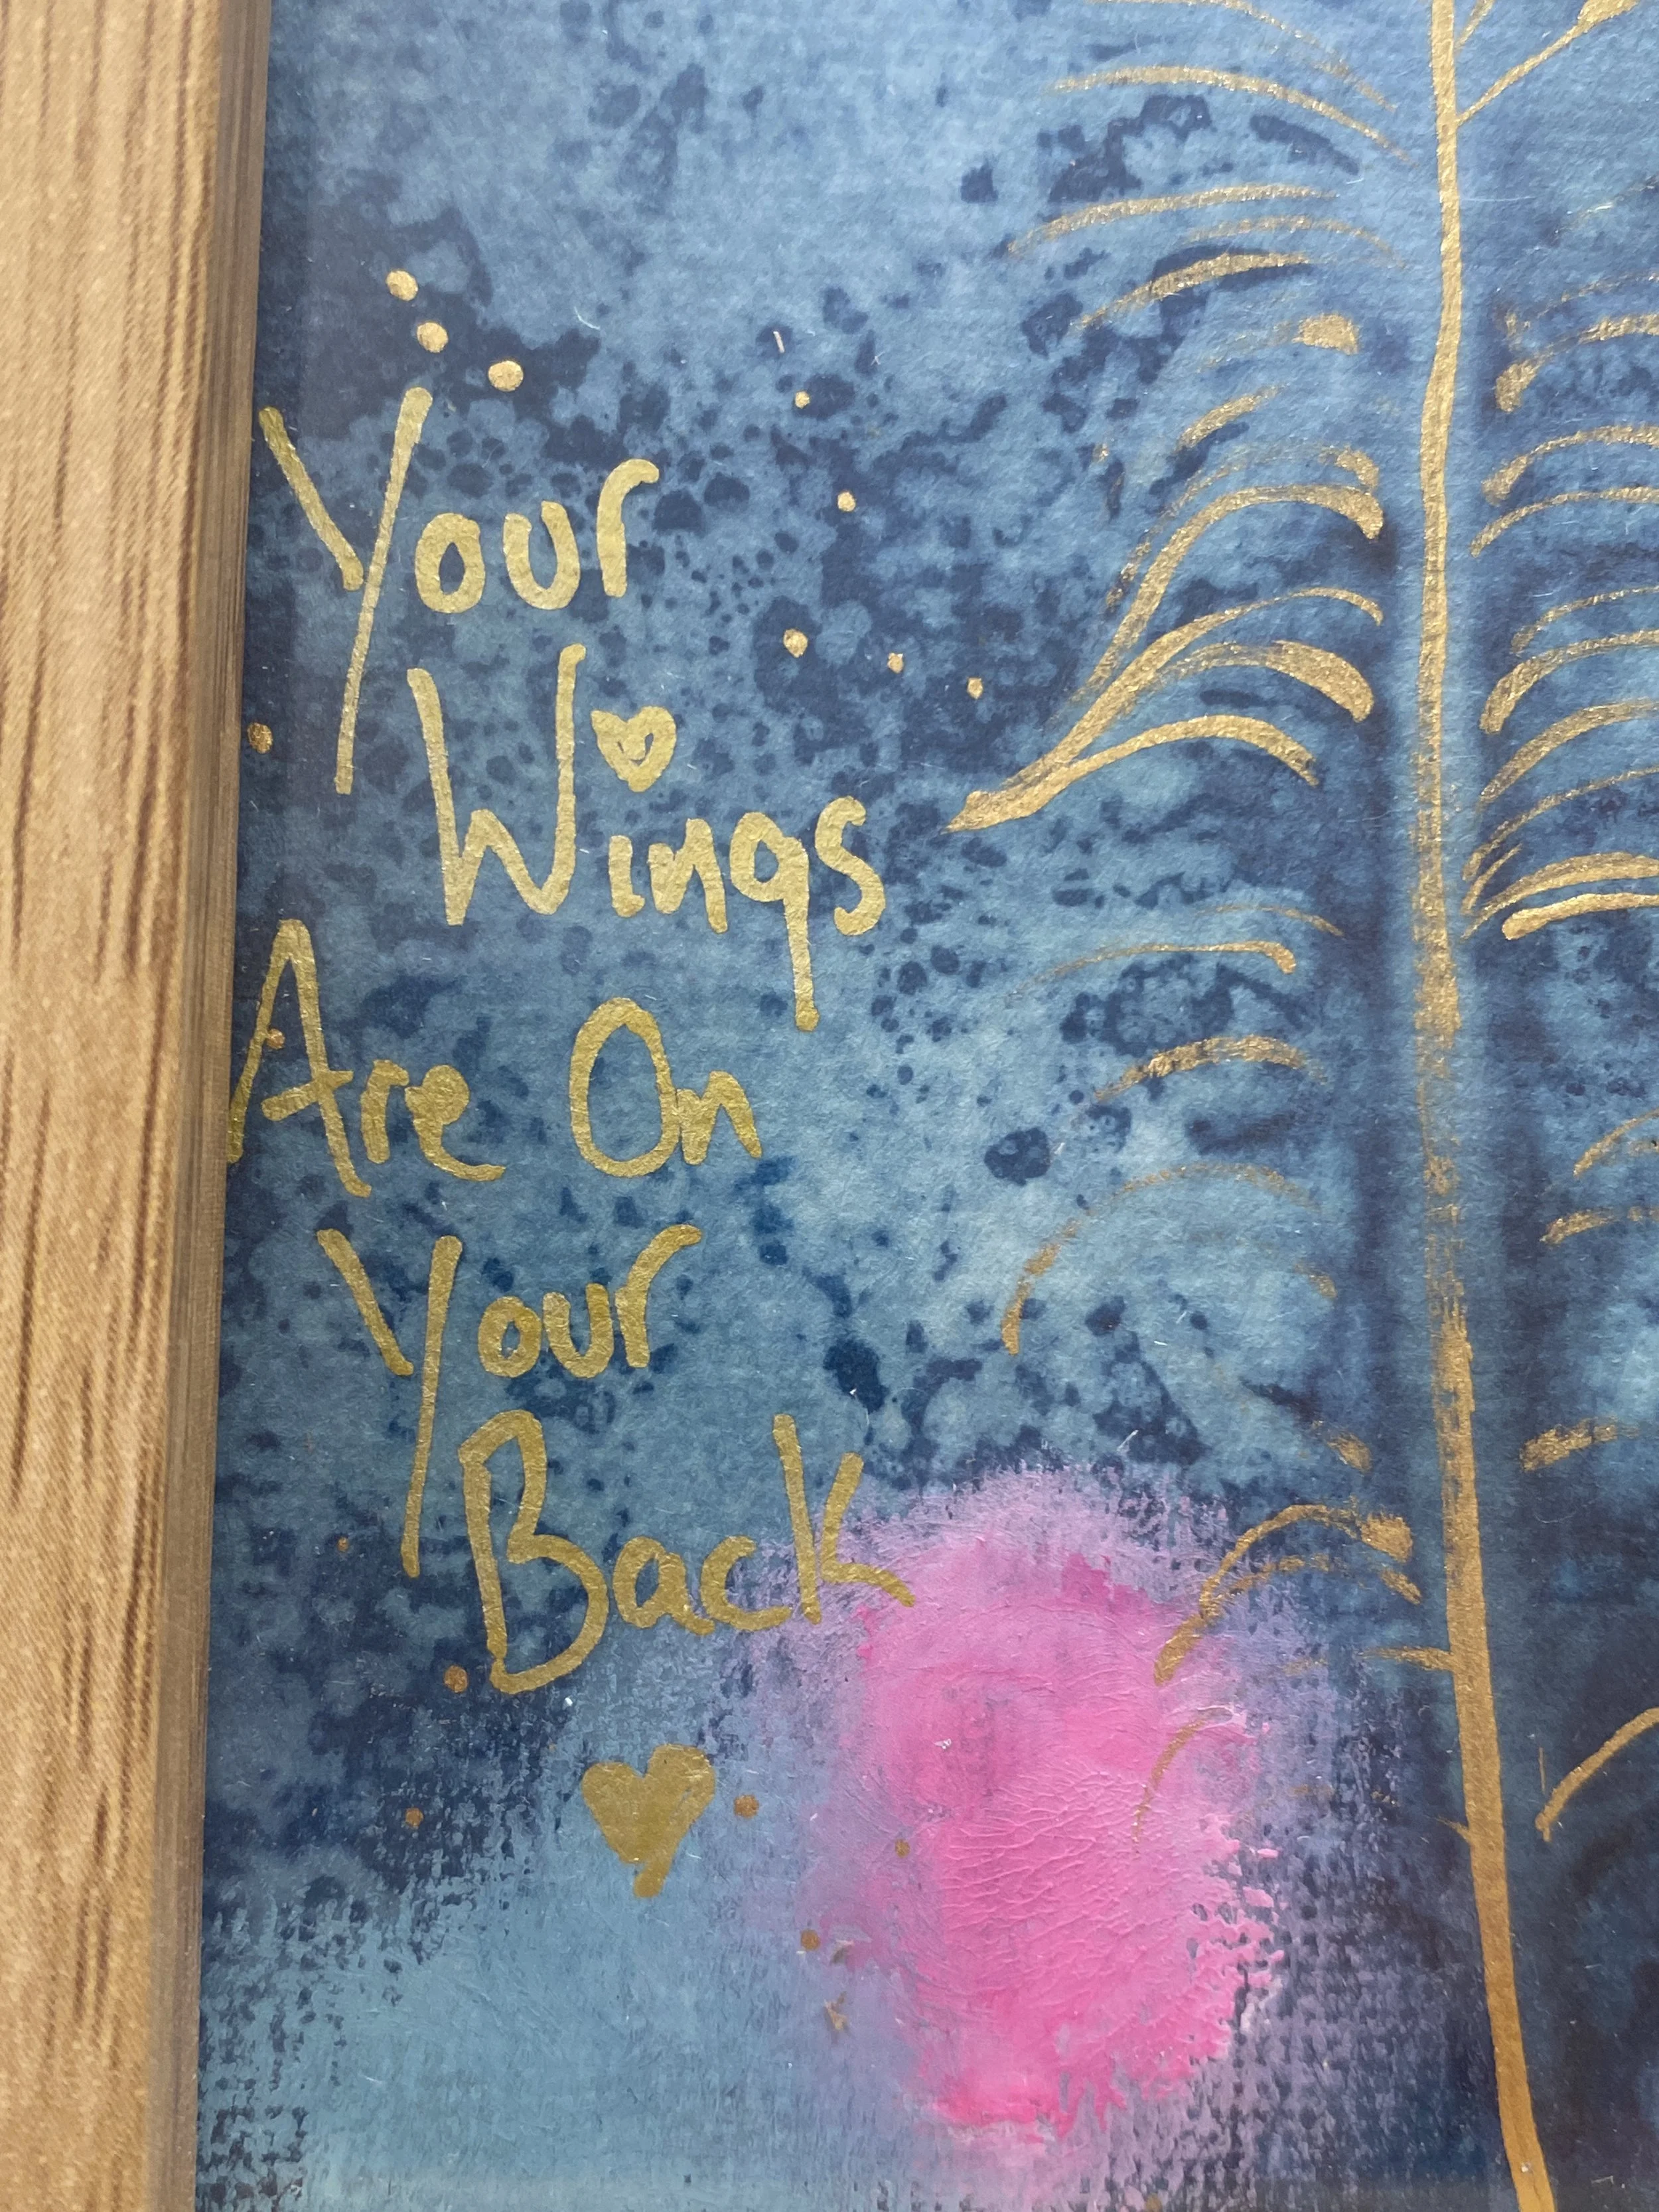 Your
Wings
Are On
Your
Back